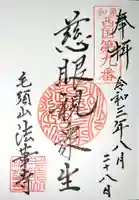 奉拝
令和三年八月
二十八日
西国第九番
慈眼視衆生
毛須山法華寺